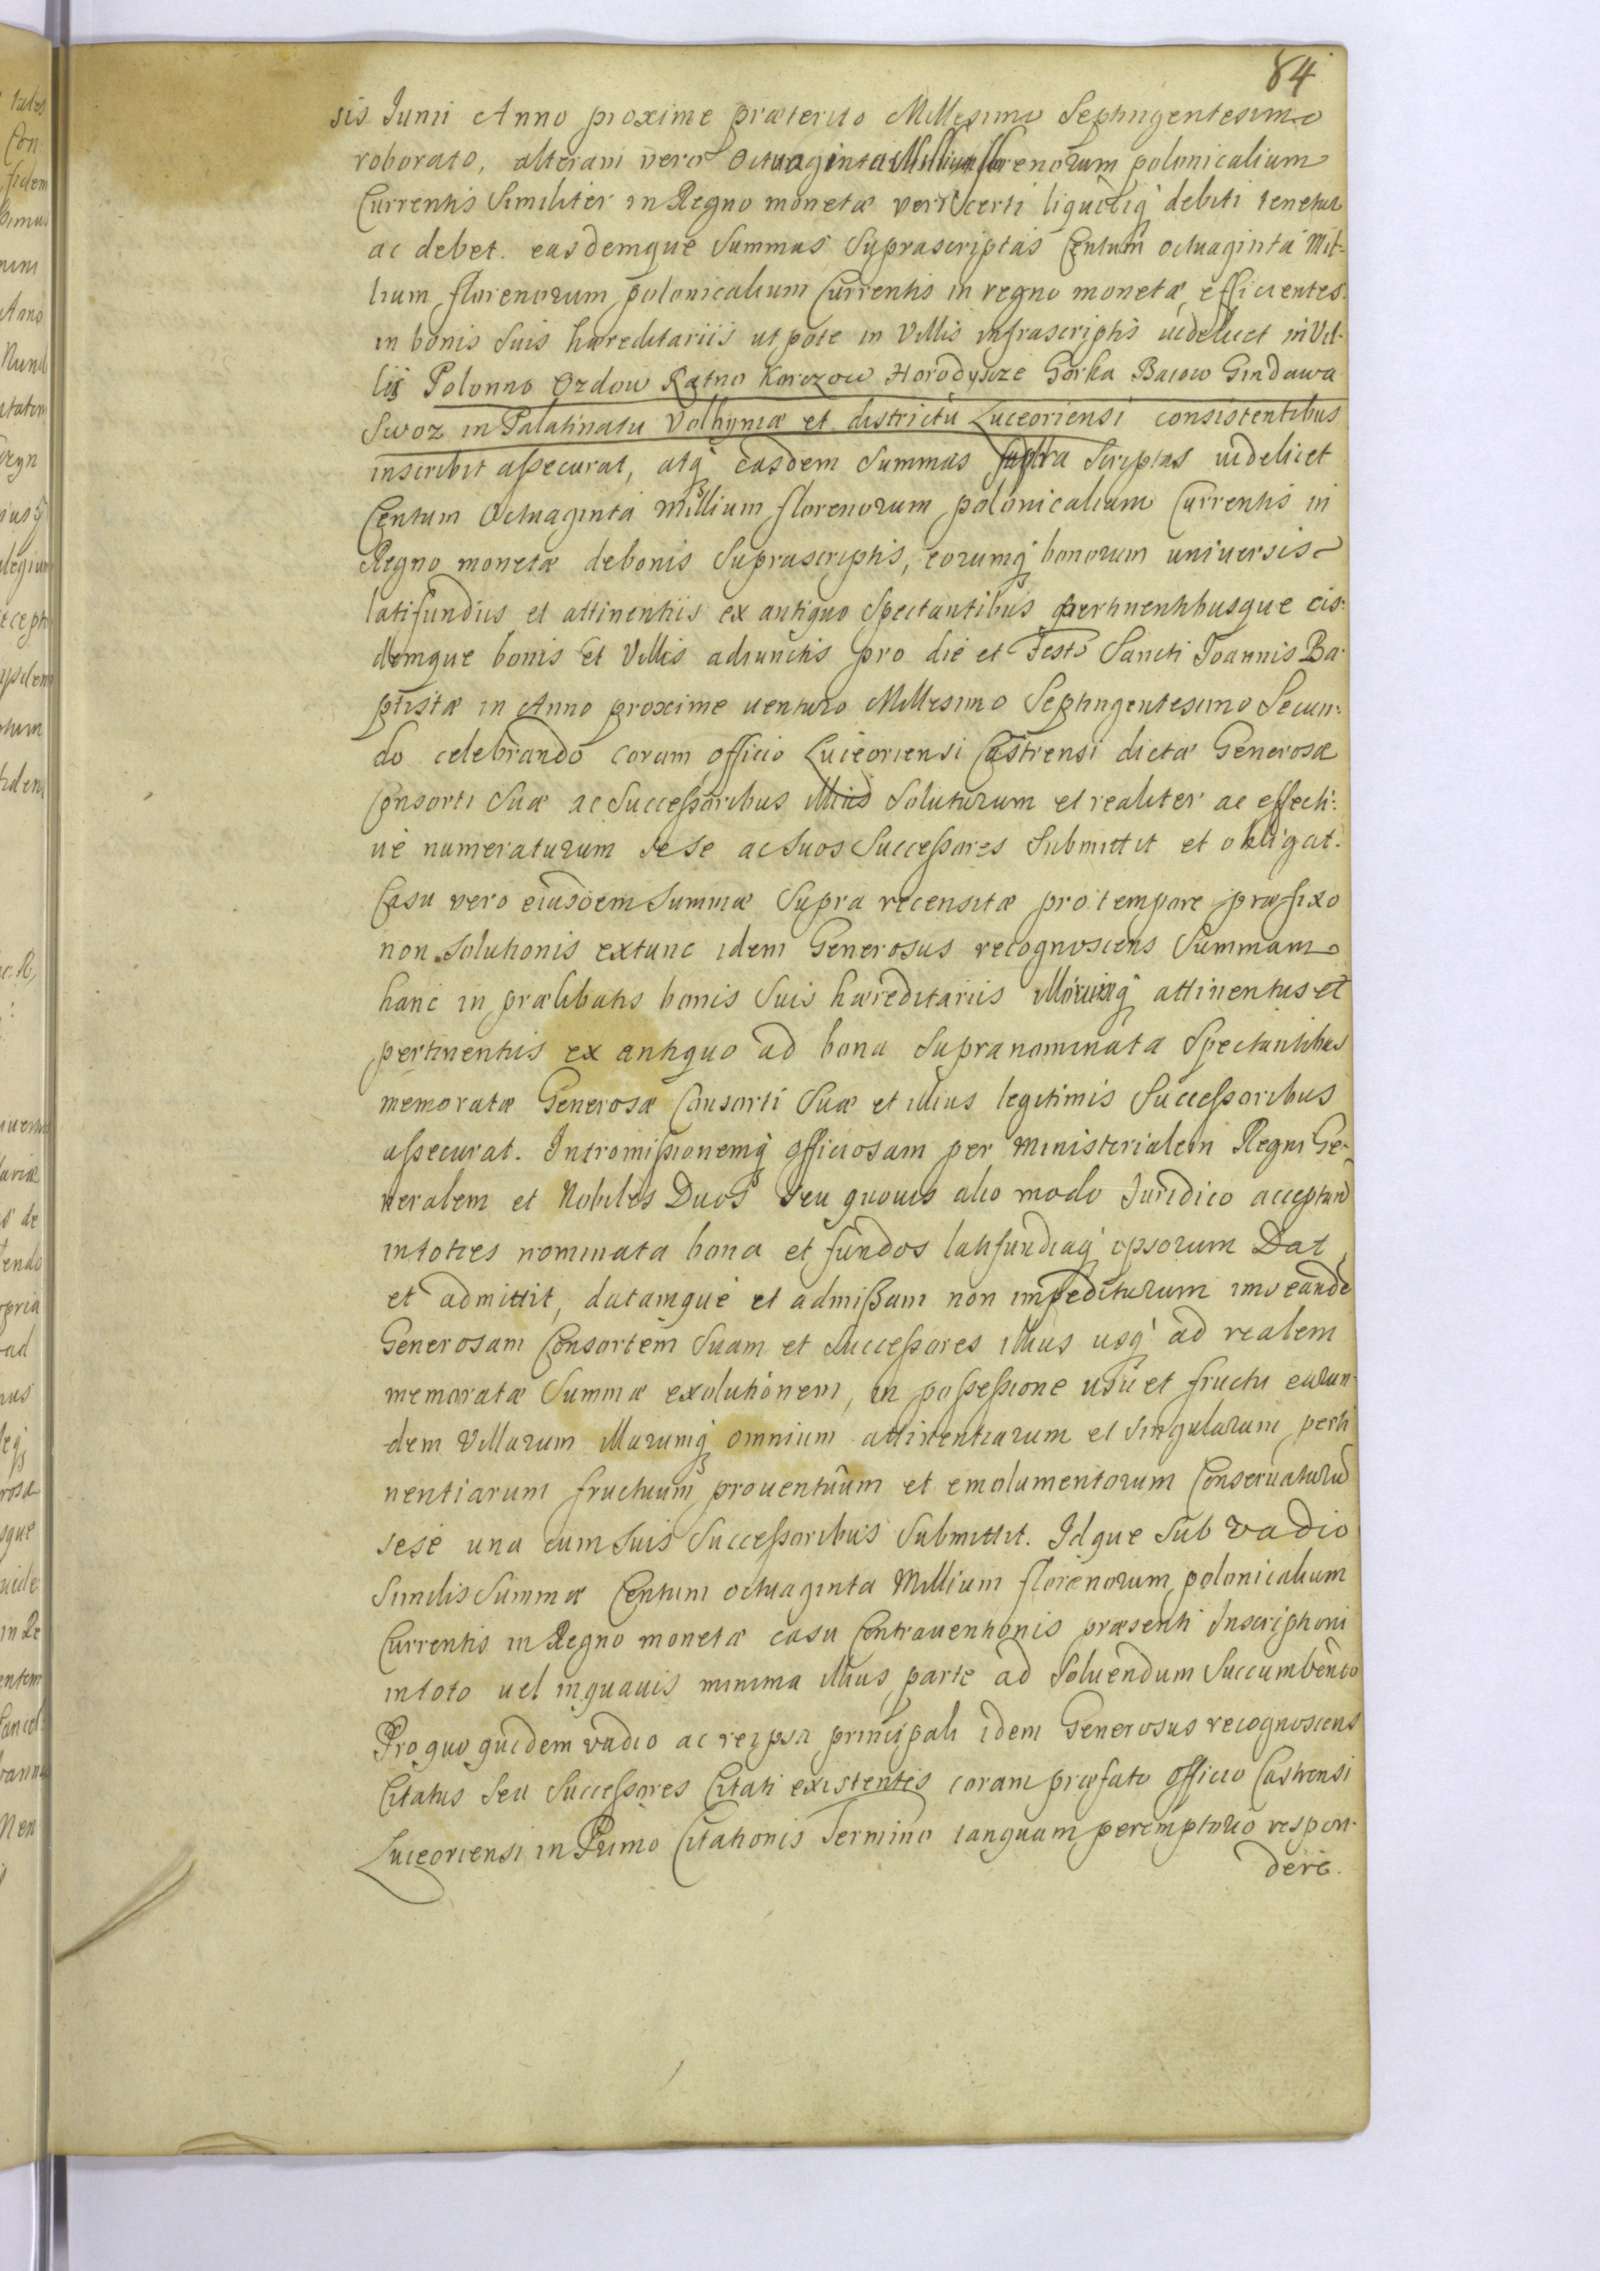 84
sis Junii Anno proxime præterito Millesimo Septingentesimo
roborato, alteram vero Octuaginta Millium florenorum polonicalium
Currentis Similiter in Regno monetæ veri certi liquidiq debiti tenetur
ac debet. easdemque Summas Suprascriptas Centum octuaginta Mil-
lium florenorum polonicalium Currentis in regno monetæ efficientes
in bonis Suis hæreditariis utpote in Villis infrascriptis videlicet in Vil-
lis Polonno Ozdow Ratno Korczow Horodyszcze Gorka Bacow Gindawa
Swoz in Palatinatu Volhyniæ et districtu Luceoriensi consistentibus
inscribit assecurat, atq easdem Summas supra Scriptas videlicet
Centum Octuaginta Millium florenorum polonicalium Currentis in
Regno monetæ de bonis Suprascriptis, eorumq bonorum universis
latifundiis et attinentiis ex antiquo Spectantibus pertinentibusque eis-
demque bonis et Villis adiunctis pro die et Festo Sancti Joannis Ba-
ptistæ in Anno proxime venturo Millesimo Septingentesimo Secun-
do celebrando coram officio Luceoriensi Castrensi dictæ Generosæ
Consorti Suæ ac Successoribus illius Soluturum et realiter ac effecti-
ve numeraturum sese ac Suos Successores Submittit et obligat.
Casu vero eiusdem Summæ Supra recensitæ pro tempore præfixo
non Solutionis extunc idem Generosus recognoscens Summam
hanc in prælibatis bonis Suis hæreditariis illorumq attinentiis et
pertinentiis ex antiquo ad bona Supranominata Spectantibus
memoratæ Generosæ Consorti Suæ et illius legitimis Successoribus
assecurat. Intromissionemq officiosam per Ministerialem Regni Ge-
neralem et Nobiles Duos seu quovis alio modo Juridico acceptand
in toties nominata bona et fundos latifundiaq ipsorum Dat
et admittit, datamque et admissam non impediturum imo eande
Generosam Consortem Suam et Successores illius usq ad realem
memoratæ Summæ exolutionem, in possessione usu et fructu earun-
dem Villarum illarumq omnium attinentiarum et Singularum perti
nentiarum fructuum proventuum et emolumentorum Conservaturu
sese una cum Suis Successoribus Submittit. Idque Sub vadio
Similis Summæ Centum octuaginta Millium florenorum polonicalium
Currentis in Regno monetæ casu Contraventionis præsenti Inscriptioni
in toto vel in quavis minima illius parte ad Solvendum Succumbendo
Pro quo quidem vadio ac re ipsa principali idem Generosus recognoscens
Citatus Seu Successores Citati existentes coram præfato Officio Castrensi
Luceoriensi in Primo Citationis Termino tanquam peremptorio respon-
dere.